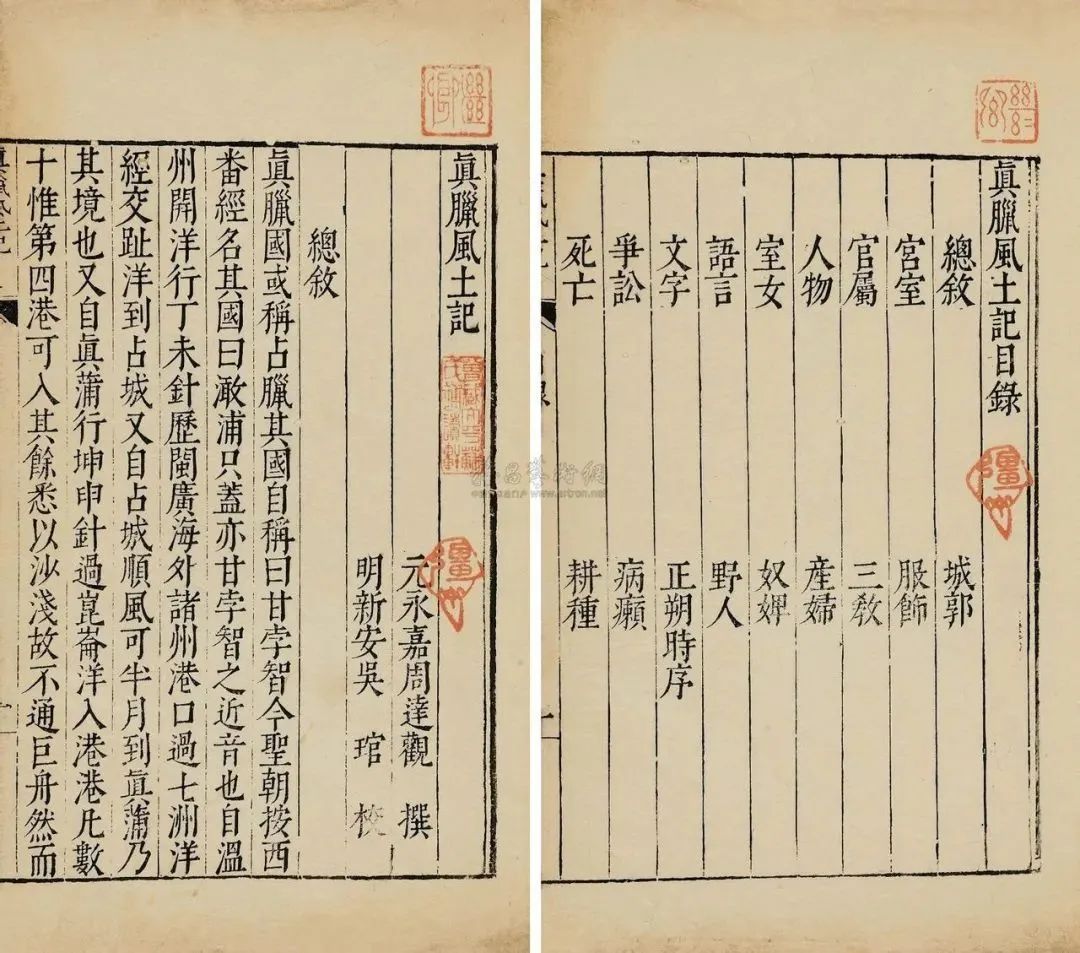 眞臘風土記目錄
總敘　城郭
宮室　服飾
官屬　三敎
人物　産婦
室女　奴婢
語言　野人
文字　正朔時序
爭訟　病癩
死亡　耕種
眞臘風土記
元永嘉周達觀　撰
明新安吳　琯　校
總敘
眞臘國或稱占臘其國自稱曰甘孛智今聖朝按西
番經名其國曰澉浦只蓋亦甘孛智之近音也自溫
州開洋行丁未針歷閩廣海外諸州港口過七洲洋
經交趾洋到占城又自占城順風可半月到眞蒲乃
其境也又自眞蒲行坤申針過崑崙洋入港港凡數
十惟第四港可入其餘悉以沙淺故不通巨舟然而
www.artron.net